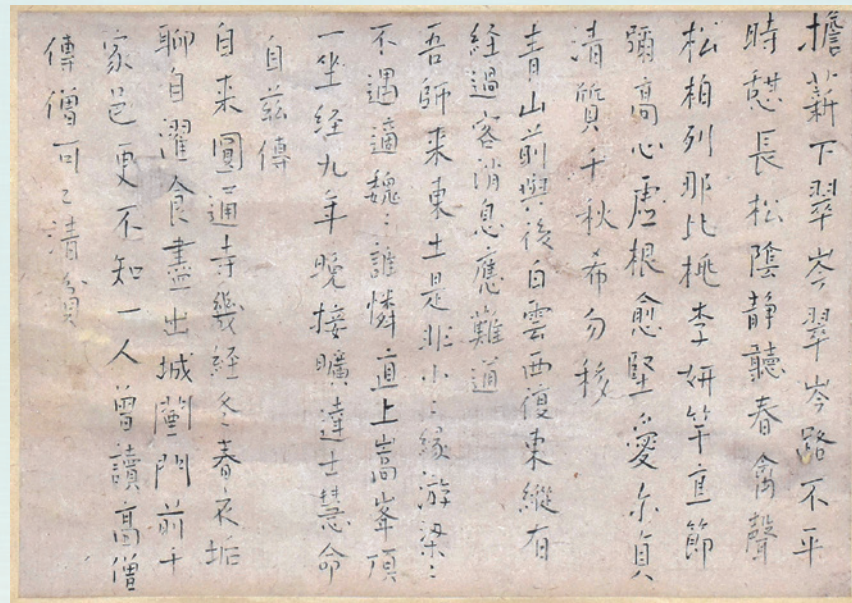 擔薪下翠岑翠岑路不平
時憩長松陰静聽春禽聲
松柏列那比桃李妍竿直節
彌高心虚根愈堅愛尓貞
清質千秋希勿移
青山前與後白雲西復東縱有
経過客消息應難通
吾師来東土是非小〻縁游梁〻
不遇適魏〻誰憐直上嵩峯頂
一坐経九年晩接曠達士慧命
自茲傳
自来圓通寺幾経冬春衣垢
聊自濯食盡出城闉門前千
家邑更不知一人曾讀高僧
傳僧可〻清貧